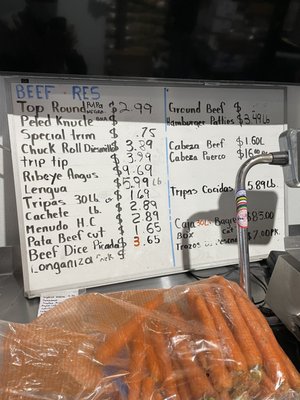 BEEF RES
Top Round $2.99
Peled Knucle $
Special trim $ .75
Chuck Roll $ 3.89
trip tip $ 3.99
Ribeye Angus $ 9.69
Lengua $ 5.99 lb
Tripas 30Lb $ 1.69
Cachete lb. $ 2.89
Menudo H.C $ 2.89
Pata Beef cut $ 1.65
Beef Dice Picada $ 3.65
Longaniza $
Ground Beef $
Hamburger Patties $3.49Lb
Cabeza Beef $1.60L
Cabeza Puerco $16.00
Tripas Cocidas 5.89Lb.
Caja 30Lb Bagre $85.00
Box Cat
Trozos $7.00PK